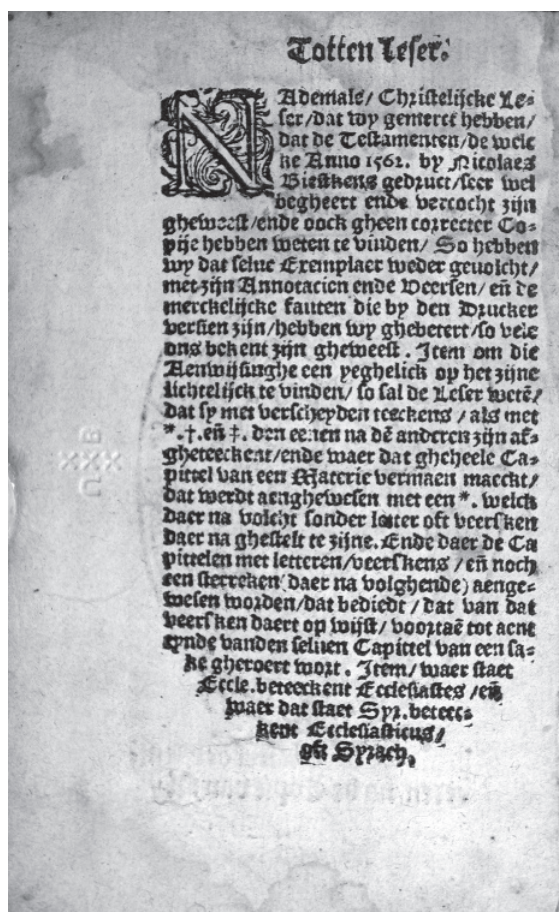 Totten Leser.
NAdemale/ Christelijcke Le=
ser/dat wy gemerct hebben/
dat de Testamenten/de welc
ke Anno 1562. by Nicolaes
Biestkens gedruct/seer wel
begheert ende vercocht zijn
gheweest/ende oock gheen correcter Co=
pije hebben weten te vinden/ So hebben
wy dat selue Exemplaer weder geuolcht/
met zijn Annotacien ende Veersen/ eñ de
merckelijcke fauten die by den Drucker
versien zijn/hebben wy ghebetert/so vele
ons bekent zijn gheweest. Item om die
Aenwijsinghe een yeghelick op het zijne
lichtelijck te vinden/ so sal de Leser wetē/
dat sy met verscheyden teeckens/ als met
*.†.eñ ‡. den eenen na dē anderen zijn af=
gheteeckent/ende waer dat gheheele Ca=
pittel van een Materie vermaen maeckt/
dat werdt aenghewesen met een *. welck
daer na volcht sonder letter oft veersken
daer na ghestelt te zijne. Ende daer de Ca
pittelen met letteren/veerskens/ eñ noch
een sterreken( daer na volghende) aenge=
wesen worden/dat bediedt/ dat van dat
veersken daert op wijst/ voortaē tot aent
eynde vanden seluen Capittel van een sa=
ke gheroert wort. Item/ waer staet
Eccle.beteeckent Ecclesiastes/eñ
waer dat staet Syr.beteec=
kent Ecclesiasticus/
oft Syrach.